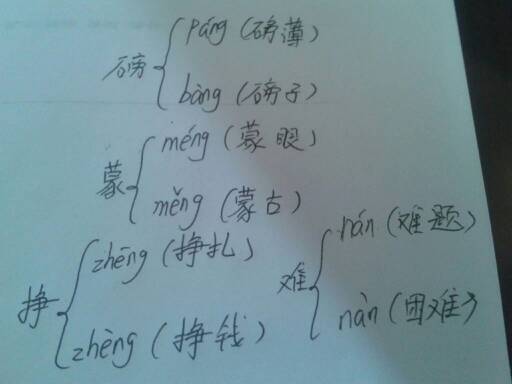 páng (磅薄)
磅
bàng (磅子)
méng (蒙眼)
蒙
měng (蒙古)
zhēng (挣扎)
挣
zhèng (挣钱)
nán (难题)
难
nàn (困难)